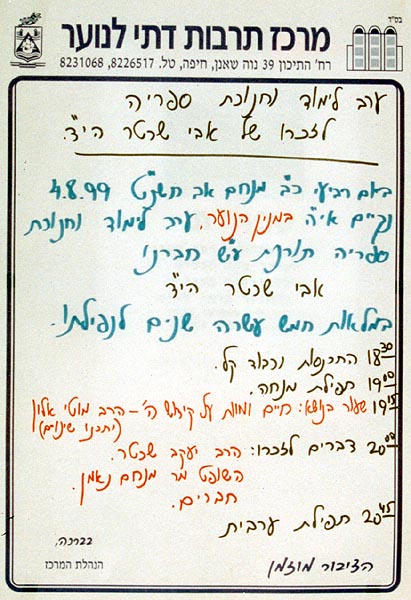 בס"ד
מרכז תרבות דתי לנוער
רח' התיכון 39 נוה שאנן, חיפה, טל. 8226517, 8231068
ערב לימוד וחנוכת ספריה
לזכרו של אבי שכטר הי"ד.
ביום רביעי כ"ב מנחם אב תשנ"ט 4.8.99
נקיים אי"ה במנין הנוער, ערב לימוד וחנוכת
ספריה תורנית ע"ש חברנו
אבי שכטר הי"ד
במלאות חמש עשרה שנים לנפילתו.
18³⁰ התכנסות וכבוד קל.
19⁰⁰ תפילת מנחה.
19¹⁵ שעור בנושא: חיים ומוות על קידוש ה' - הרב מוטי אלון
(יתכנו שינויים)
20⁰⁰ דברים לזכרו: הרב יעקב שכטר.
השופט מר מנחם נאמן.
חברים.
20⁴⁵ תפילת ערבית
בברכה,
הנהלת המרכז
הציבור מוזמן